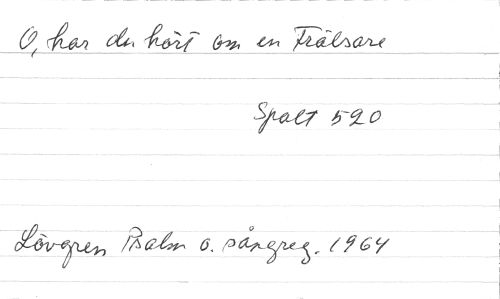 O, har du hört om en Frälsare
Spalt 520
Lövgren Psalm o. sångreg. 1964